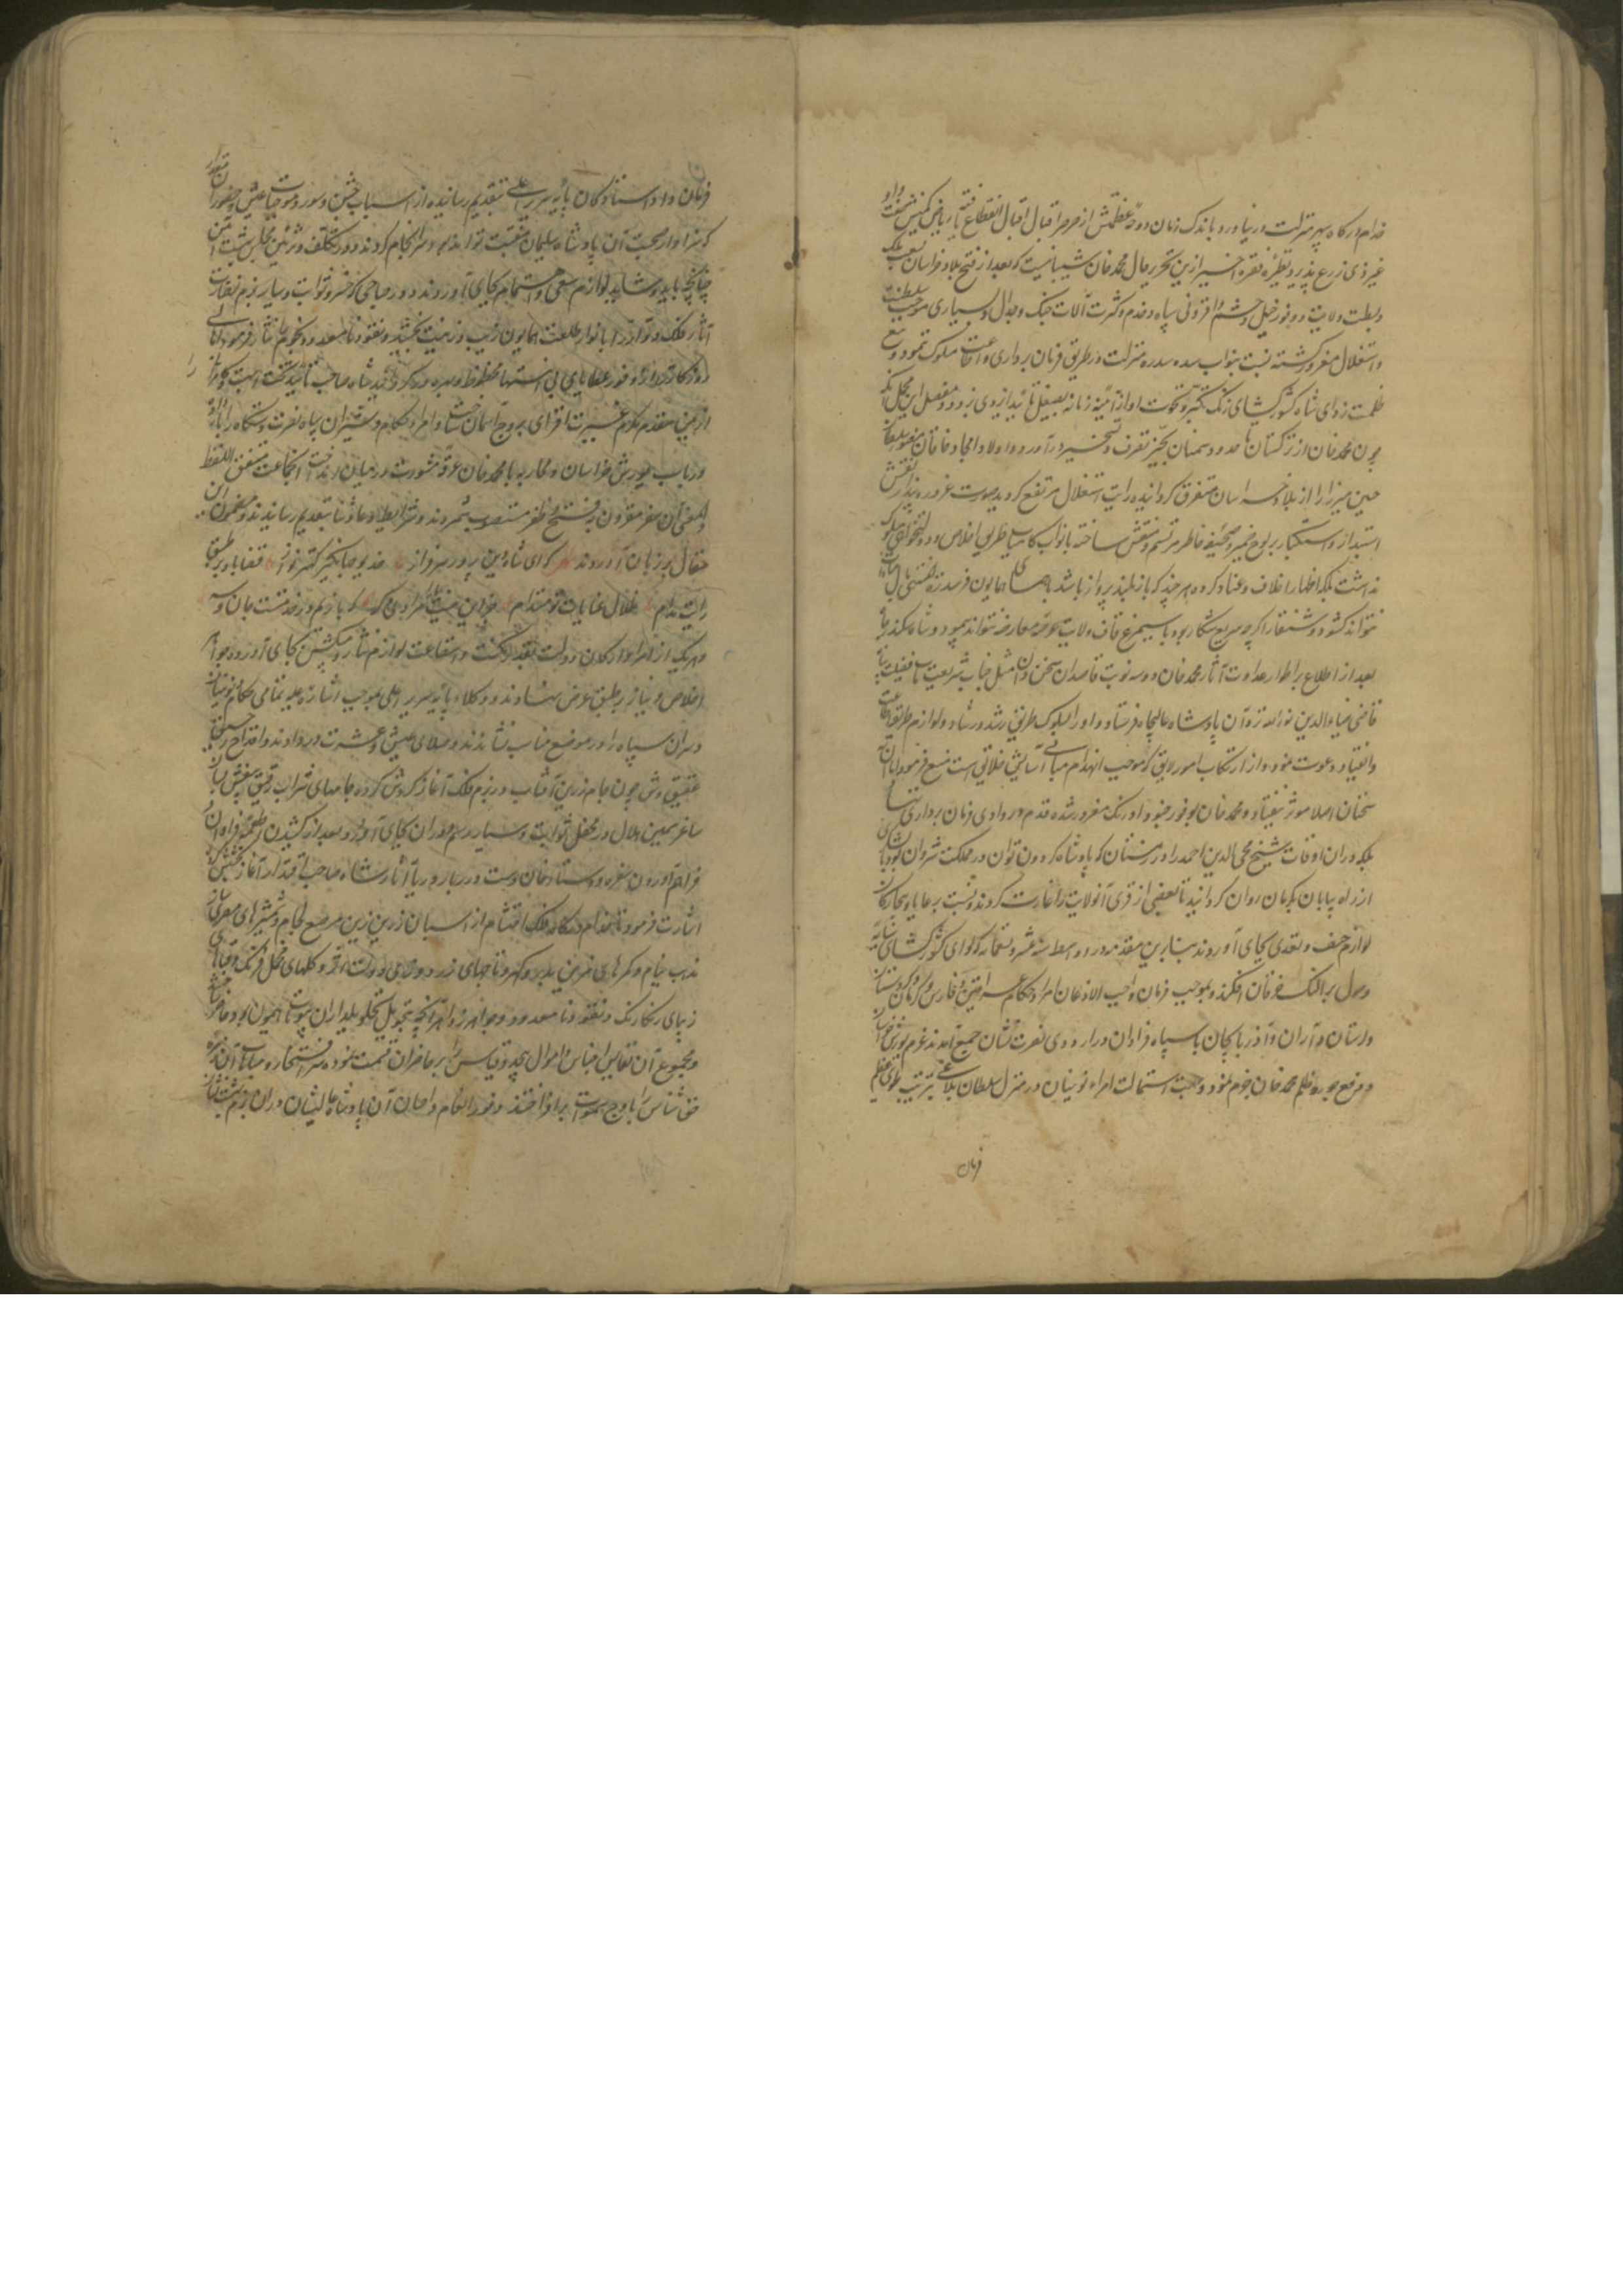 خدام درگاه سپهر منزلت در نیاورد باندک زمان دوحهٔ عظمتش از صرصر اقبال
غیر ذی زرع پذیرد نظیر فقره اخیر ازین تحریر حال محمد خان شیبانیست که بعد از فتح بلاد خراسان
و بسطت ولایت و وفور خیل و حشم و افزونی سپاه و خدم و کثرت آلات جنک و جدال و بسیاری
و استقلال مغرور کشته نسبت بنواب سده سدره منزلت در طریق فرمان برداری و
ظلمت زدای شاه کشور کشای زنک تکبر و نخوت او از آئینه زمانه بصیقل تائید ازدی زدود و مفصل این مجمل آنکه
چون محمد خان از ترکستان تا حدود سمنان بحیز تصرف و تسخیر در آورد و اولاد امجاد خاقان منصور سلطان
حسین میرزا را از بلاد خراسان متفرق کردانیده رایت استقلال مرتفع کردید و صورت غرور و پندار و نقش
استبداد و استکبار بر لوح ضمیر و صحیفه خاطر مرتسم و منتقش ساخته با نواب کامیاب طریق اخلاص و دولتخواهی مسلوک
نداشت بلکه اظهار خلاف و عناد کرد و هر چند که باز بلند پرواز باشد با همای همایون فر سدرة المنتهی بال
نتواند کشود و شنقار اکرچه سریع شکار بود با سیمرغ قاف ولایت عرصهٔ معارضه نتواند پیمود و شاه سکندر
بعد از اطلاع بر اطوار عداوت آثار محمد خان دو سه نوبت قاصدان سخن دان مثل جناب شریعت مآب فضیلت
قاضی ضیاء الدین نورالله نزد آن پادشاه عالیجاه فرستاد و او را بسلوک طریق رشد و رشاد و لوازم طریقه
و انقیاد دعوت نمود و از ارتکاب امور لایق که موجب انهدام مبانی آسایش خلایق است منع فرمود اما آن
سخنان اصلا موثر نیفتاد و محمد خان بوفور جنود اوزبک مغرور شده قدم در وادی فرمان برداری ننهاد
بلکه در ان اوقات شیخ محی الدین احمد را در زمستان که پادشاه کردون توان در مملکت شروان بود با لشکری
از راه بیابان بکرمان روان کردانید تا بعضی از قرای آنولایت را غارت کردند و نسبت برعایا و عجزه
لوازم حیف و تعدی بجای آوردند بنابرین مقدمه در اواسط سنه ست عشر و تسعمائه که لوای کشور کشای سایه
وصول بر النک خرقان افکند و بموجب فرمان واجب الاذعان امرا و حکام عراقین و فارس و کرمان و کردستان
و لرستان و آران و آذربایجان با سپاه فراوان در اردوی نصرت نشان جمع آمدند عزم یورش خراسان
و دفع جور و ظلم محمد خان جزم نمود و جهت استمالت امراء نوئینان در منزل سلطان بلاغی بترتیب طوی عظیم
فرمان
فرمان داد استادکان پایهٔ سریر اعلی بتقدیم رسانیده از اسباب جشن و سور و موجبات عیش و حضور آن مقدار
که سزاوار صحبت آن پادشاه سلیمان منقبت تواند بود سرانجام کردند و در تکلف و تزئین مجلس بهشت آئین
چنانچه باید و شاید لوازم سعی و اهتمام بجای آوردند و در صباحی که خسرو ثوابت و سیار بزم نضارت
آثار فلک دوار را بانوار طلعت همایون زیب و زینت بخشید و نقود نامعدود نجوم نثار فرموده
روزکار را از وفور عطایای بی انتها محظوظ و بهره ور کردانید شاه صاحب تائید تخت
از یمن مقدم مکرم غیرت افزای بروج آسمان ساخت و امرا و حکام و سروران سپاه نصرت دستکاه را بار داده
در باب یورش خراسان و محاربه با محمد خان قرعه مشورت در میان انداخت آنجماعت متفق اللفظ
و المعنی آن سفر مقرون بفتح و ظفر مستصوب شمردند و شرایط دعا و ثنا بتقدیم رسانیدند و مضمون این
مقال بر زبان آوردند که ای شاه دین پرور سرفراز خدیو جهانکیر کهتر نواز قضا باد بر طبق
رایت مدام ظلال عنایات تو مستدام جز این نیست ما را مراد دکر که بازیم در خدمتت جان و سر
و هر یک از امرا و ارکان دولت بقدر مکنت و استطاعت لوازم نثار و پیشکش بجای آوردند و جواهر
اخلاص و نیاز بر طبق عرض نهادند و وکلاء پایهٔ سریر اعلی بموجب اشاره علیه تمامی حکام و نوئینان
و سران سپاه را در موضع مناسب نشاندند و صلای عیش و عشرت در دادند و اقداح
عقیق وش چون جام زرین آفتاب در بزم فلک آغاز کردش کرده جامهای شراب رقیق بیغش بسان
ساغر سیمین هلال در محفل ثوابت و سیار رسم دوران بجای آورد و بعد از کشیدن اطعمهٔ فراوان
فراهم آوردن سفره و دستارخوان دست دربار دریا آثار شاه صاحب اقتدار آغاز بخشش کرد
اشارت فرمود تا خدام درکاه فلک احتشام از اسپان زرین زین مرصع لجام و شمشیرهای مصری
مذهب نیام و کمرهای مزین بدر و کهر و تاجهای زر دوز و کلهای مخمل فرنک و
زیبای رنکارنک و نقود نامعدود و جواهر زواهر آنچه بتحویل تحویلداران بیوتات همیون بود حاضر
و مجموع آن نفایس اجناس و اموال بیحد و قیاس را بر حاضران قسمت نموده سر افتخار و مباهات آن زمره
حق شناس را باوج سموات برافراختند وفور انعام و احسان آن پادشاه عالیشان در ان بزم بهشت نشان